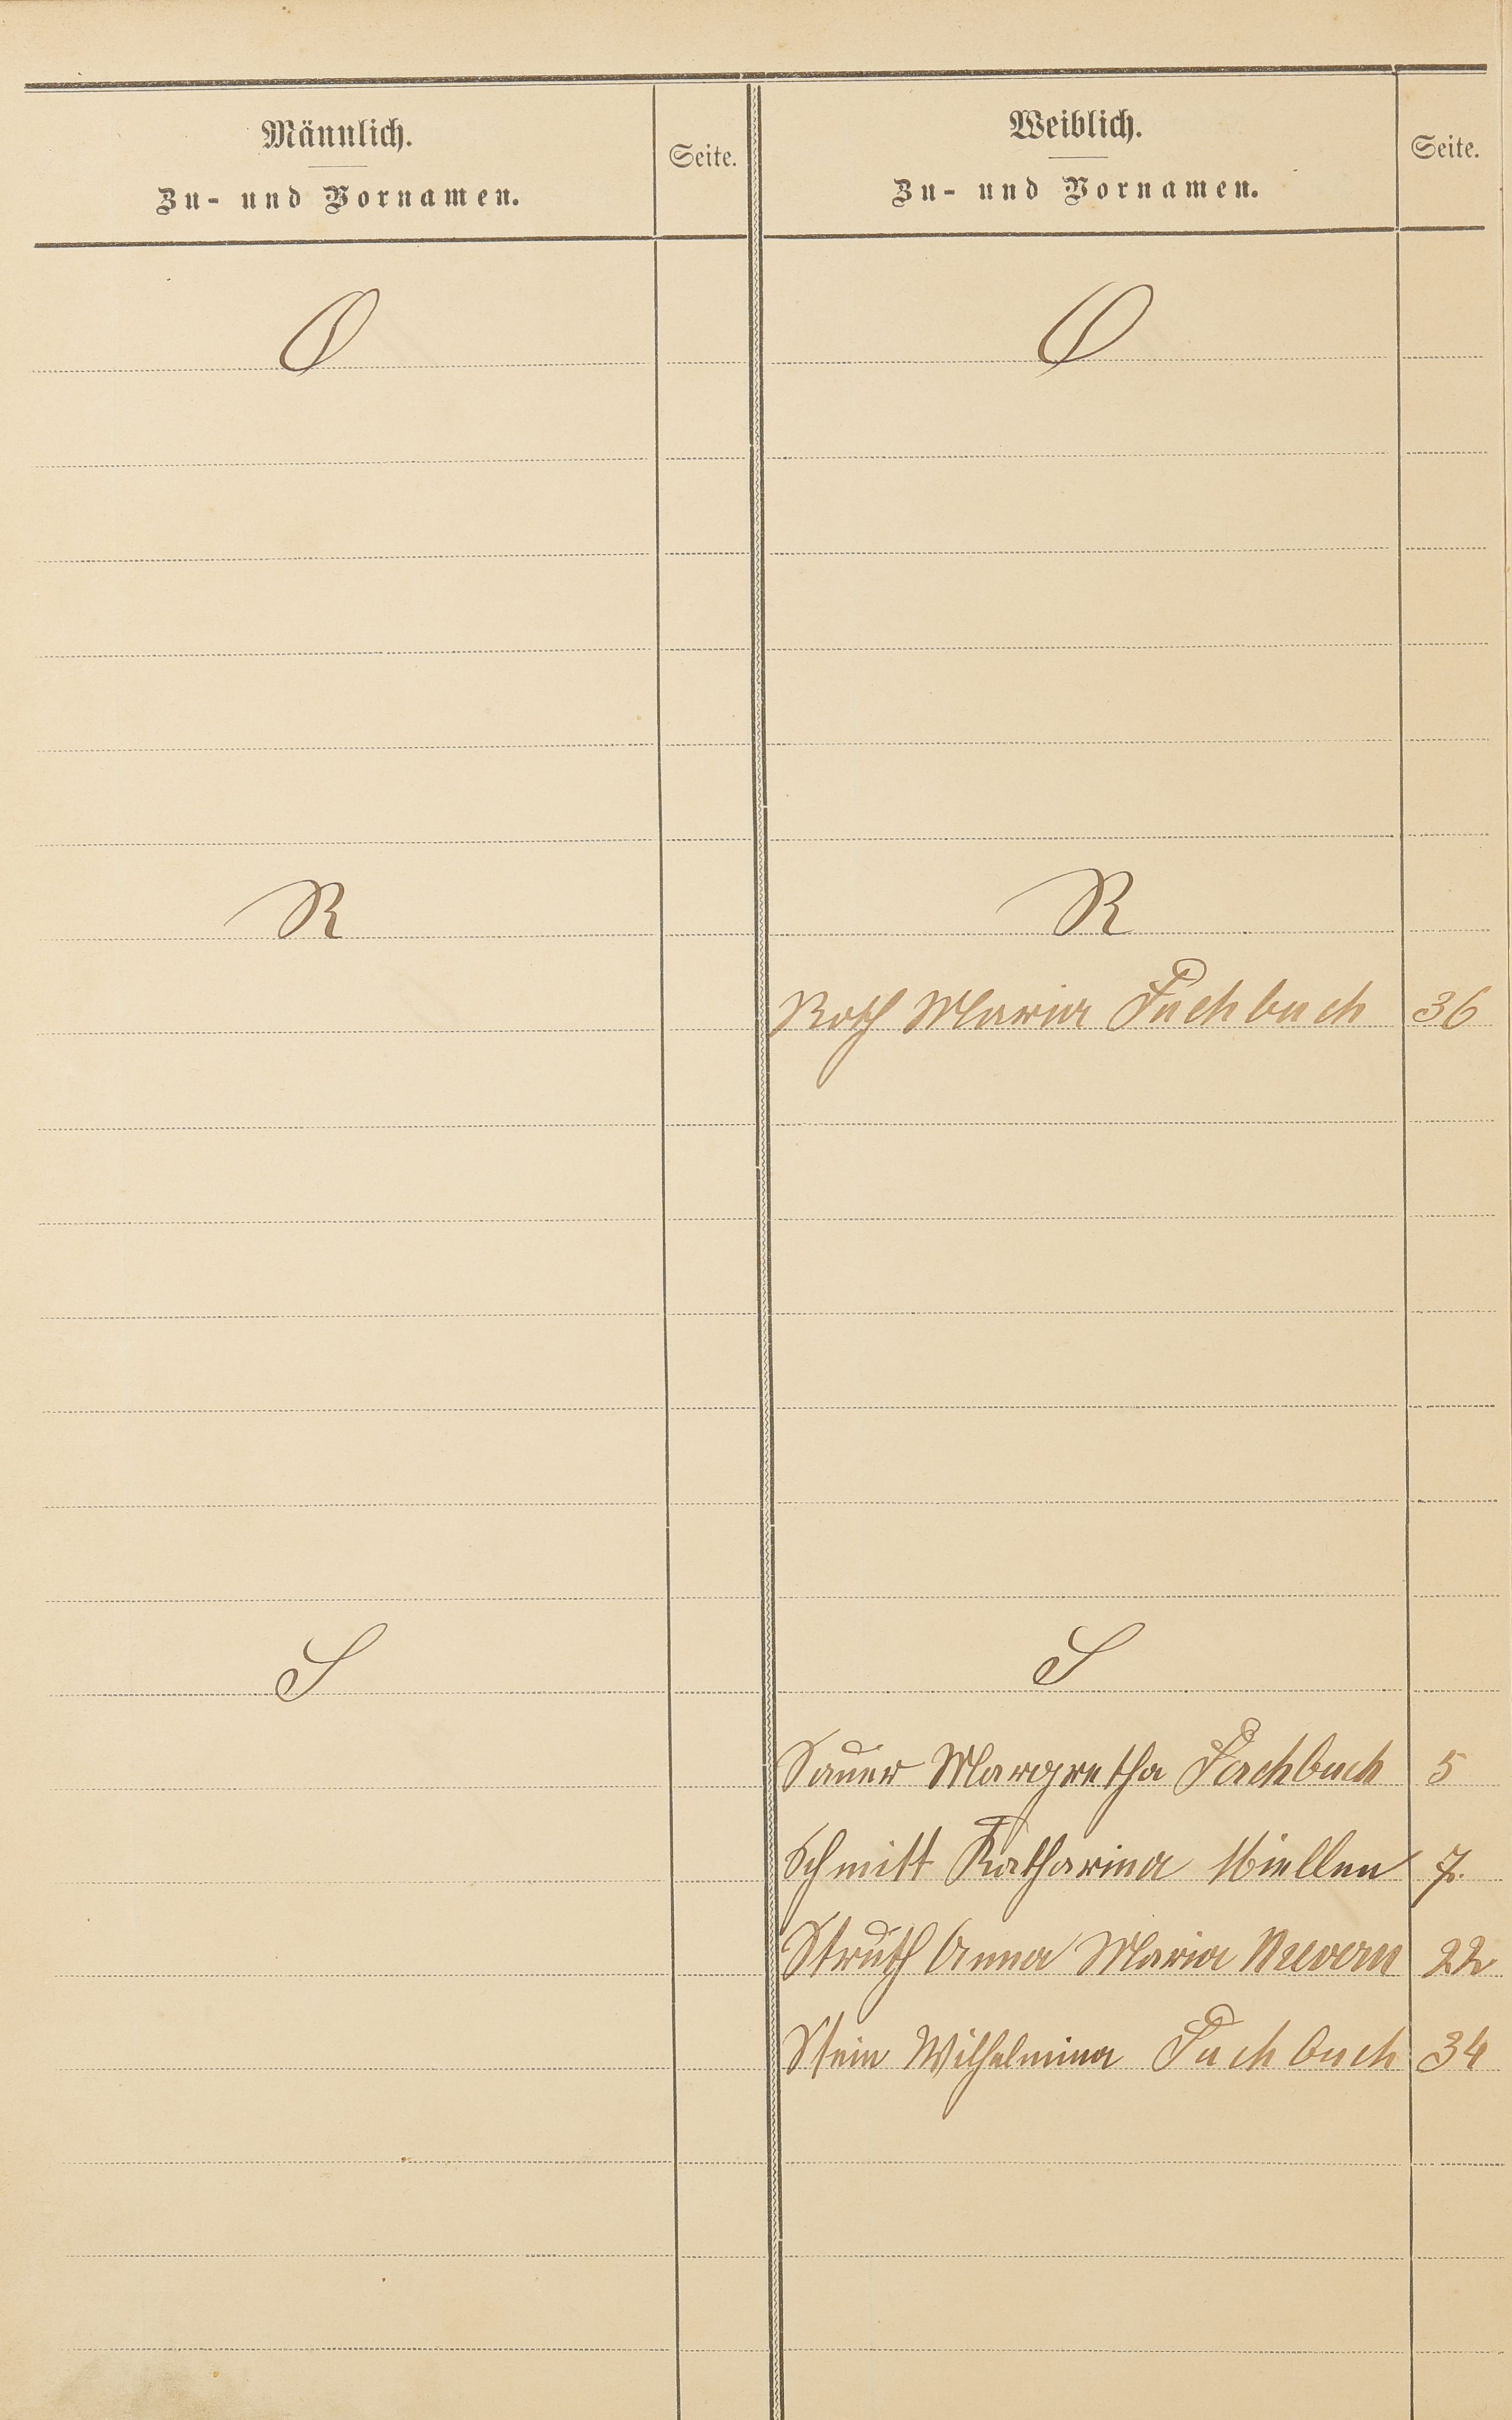 Männlich.
Zu- und Vornamen.
Seite.
Weiblich.
Zu- und Vornamen.
Seite.
O
O
R
R
Roth Maria Fachbach 36
S
S
Sauer Margretha Fachbach 5
Schmitt Katharina Miellen 7.
Struth Anna Maria Nievern 22
Stein Wilhelmina Fachbach 34